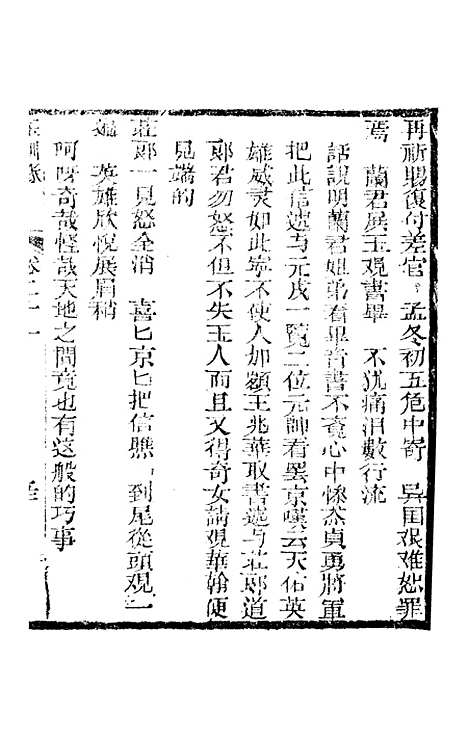 再祈賜復付差官。孟冬初五危中寄　吳国艰难恕罪
焉　蘭君展玉观書畢　不犹痛泪數行流
話説明蘭君姐弟看畢音書不竟心中惨茶貞勇將軍
把此信逓与元戎一覧二位元帥看罢京嘆云天佑英
雄威灵如此寧不使人加額王兆華取書逓与莊郎道
郎君勿怒不但不失玉人而且又得奇女請观華翰便
見端的
莊郎一見怒全消　喜匕京匕把信瞧　到尾從頭观一
遍　英雄欣悦展眉稍
呵呀奇哉怪哉天地之間竟也有这般的巧事
卷二十一